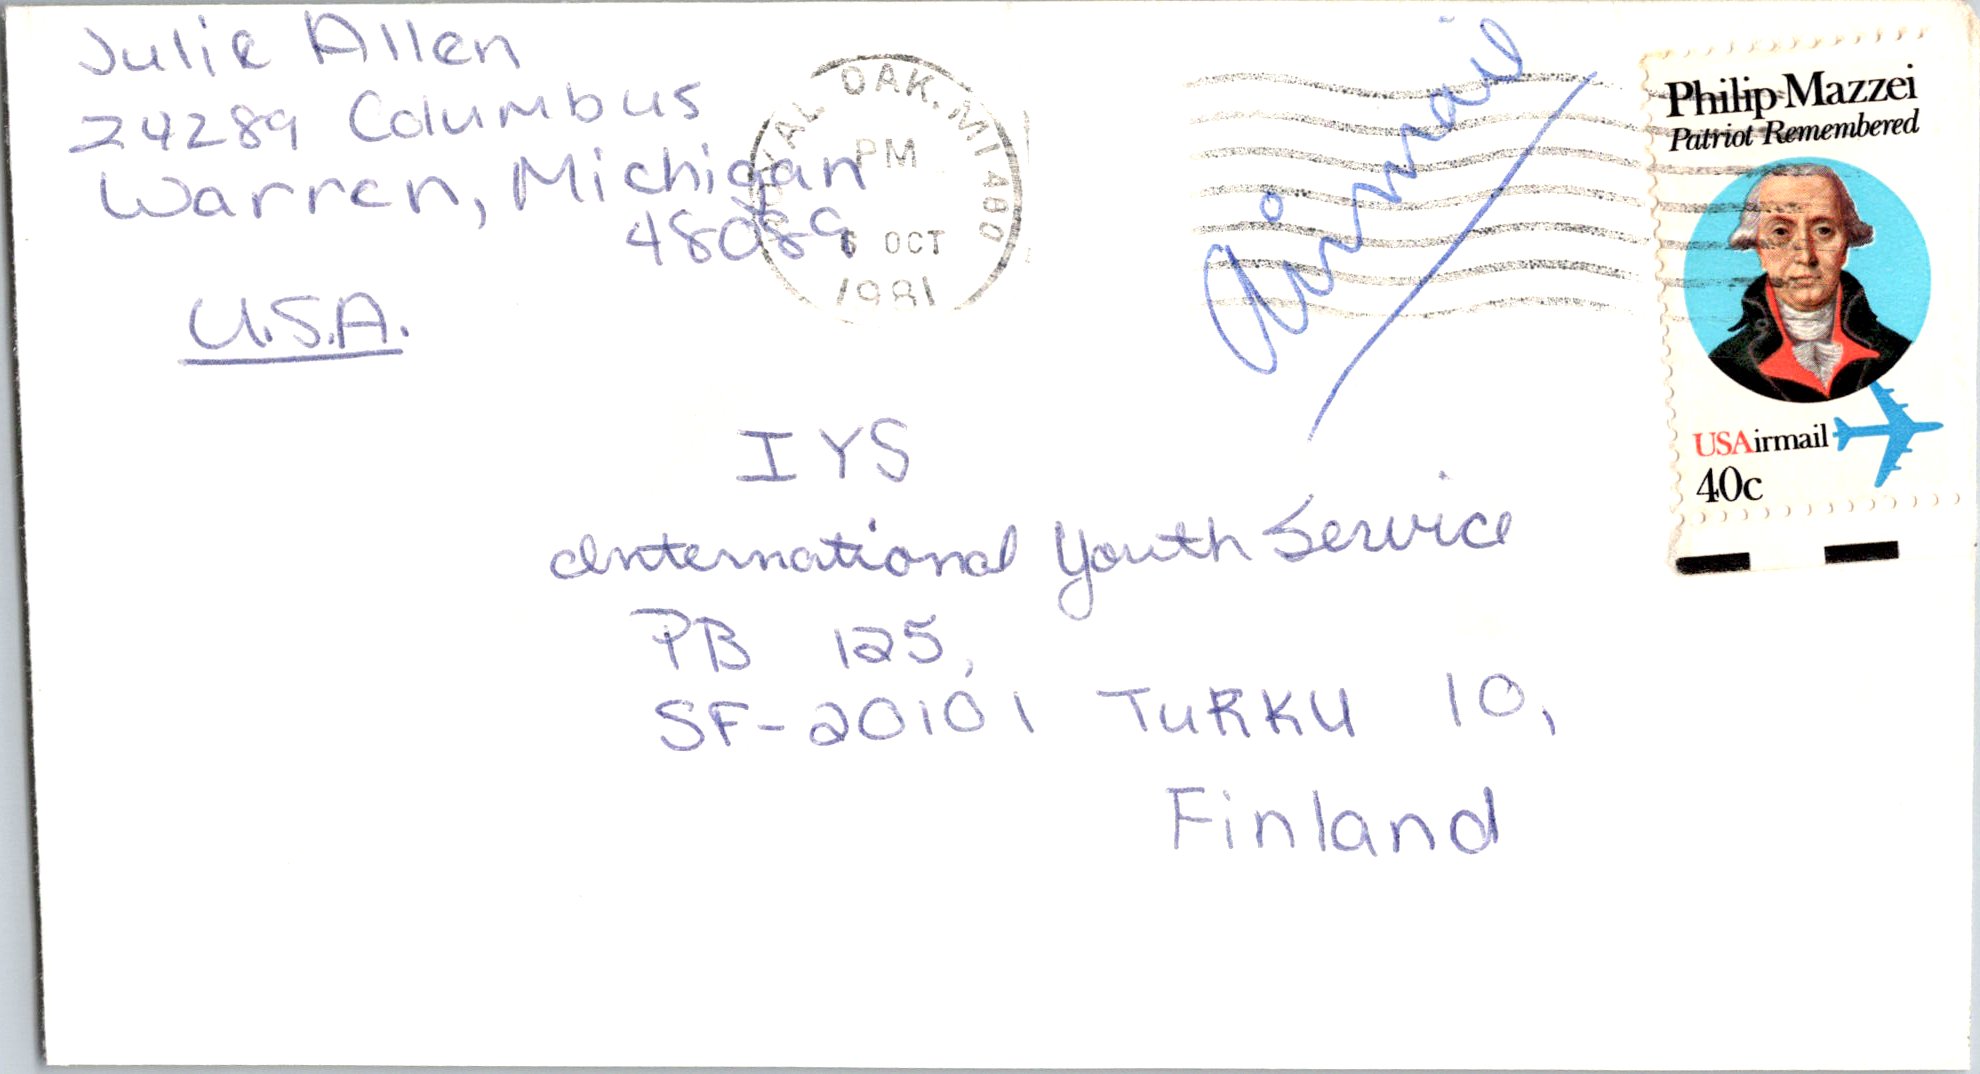 Julie Allen
24289 Columbus
Warren, Michigan
48089
U.S.A.
OAK, MI 480
PM
6 OCT
1981
airmail
Philip Mazzei
Patriot Remembered
USAirmail
40c
IYS
International Youth Service
PB 125,
SF-20101 TURKU 10,
Finland